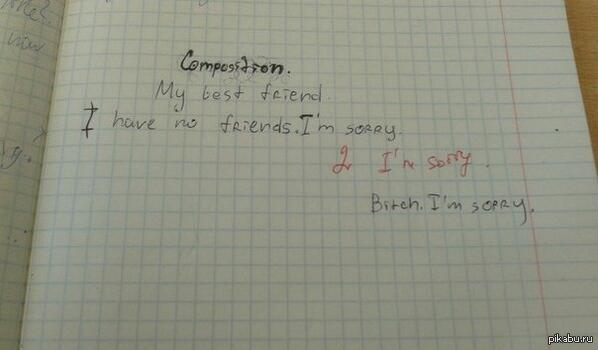 Composition.
My best friend.
I have no friends. I'm sorry.
2 I'm sorry.
Bitch. I'm sorry.
pikabu.ru